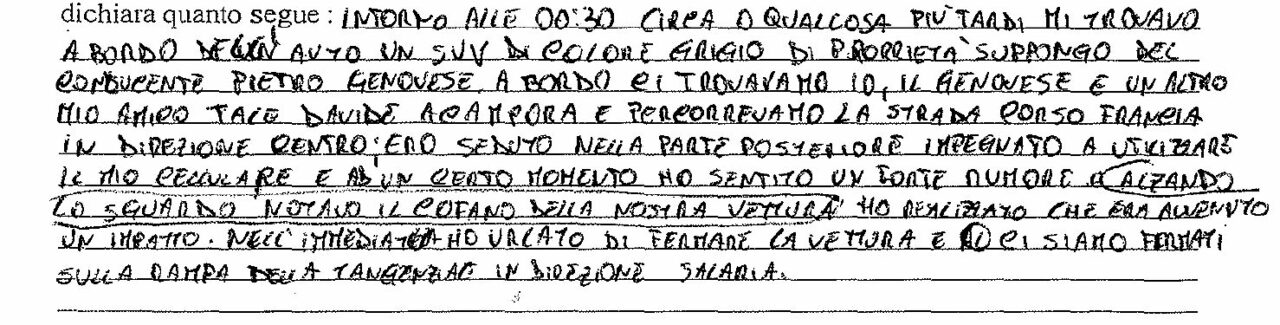 dichiara quanto segue : INTORNO ALLE 00:30 CIRCA O QUALCOSA PIU' TARDI MI TROVAVO
A BORDO DELL' AUTO UN SUV DI COLORE GRIGIO DI PROPRIETA' SUPPONGO DEL
CONDUCENTE PIETRO GENOVESE. A BORDO CI TROVAVAMO IO, IL GENOVESE E UN ALTRO
MIO AMICO TALE DAVIDE ACAMPORA E PERCORREVAMO LA STRADA CORSO FRANCIA
IN DIREZIONE CENTRO; ERO SEDUTO NELLA PARTE POSTERIORE IMPEGNATO A UTILIZZARE
IL MIO CELLULARE E AD UN CERTO MOMENTO HO SENTITO UN FORTE RUMORE ALZANDO
LO SGUARDO NOTAVO IL COFANO DELLA NOSTRA VETTURA HO REALIZZATO CHE ERA AVVENUTO
UN IMPATTO. NELL' IMMEDIATO HO URLATO DI FERMARE LA VETTURA E CI SIAMO FERMATI
SULLA RAMPA DELLA TANGENZIALE IN DIREZIONE SALARIA.